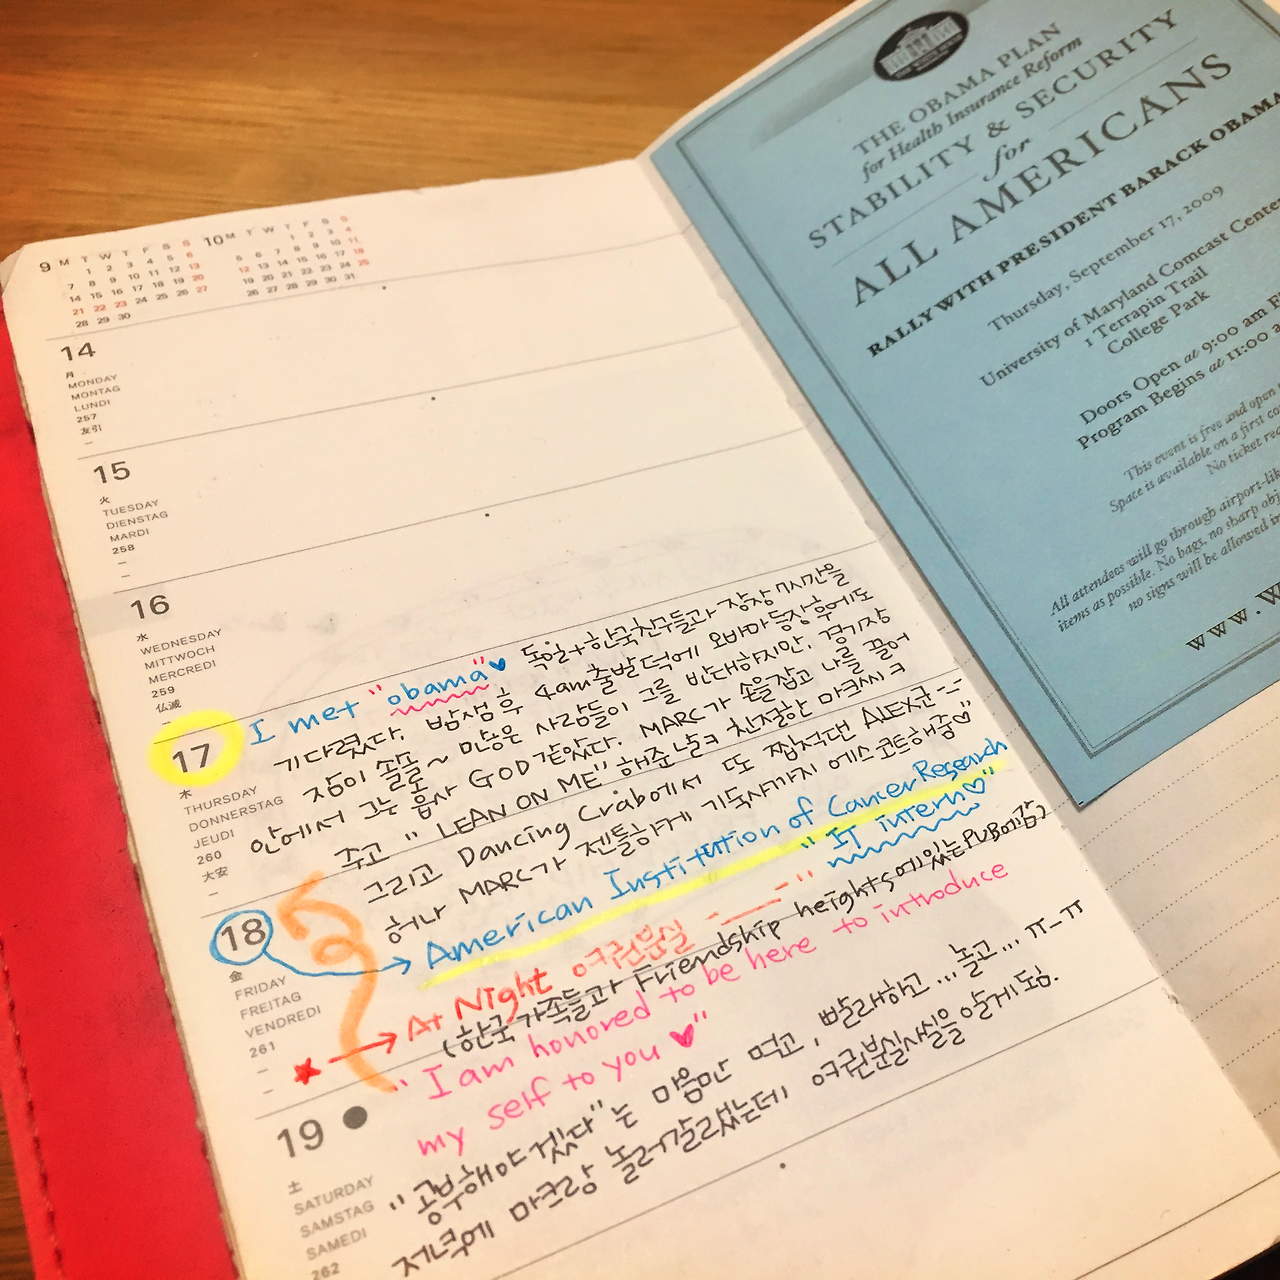 9 M T W T F S S
1 2 3 4 5 6
7 8 9 10 11 12 13
14 15 16 17 18 19 20
21 22 23 24 25 26 27
28 29 30
10 M T W T F S S
1 2 3 4
5 6 7 8 9 10 11
12 13 14 15 16 17 18
19 20 21 22 23 24 25
26 27 28 29 30 31
14
月
MONDAY
MONTAG
LUNDI
257
友引
15
火
TUESDAY
DIENSTAG
MARDI
258
16
水
WEDNESDAY
MITTWOCH
MERCREDI
259
仏滅
17
木
THURSDAY
DONNERSTAG
JEUDI
260
大安
I met "obama"♥ 독일+한국친구들과 장장 7시간을
기다렸다. 밤샘 후 4am출발 덕에 오바마 등장 후에도
잠이 솔솔~ 많은 사람들이 그를 반대하지만, 경기장
안에서 그는 흡사 GOD 같았다. MARC가 손을잡고 나를 끌어
주고 "LEAN ON ME" 해준 날ㅋ 친절한 마크씨ㅋ
그리고 Dancing Crab에서 또 찝적댄 ALEX군 -_-
허나 MARC가 젠틀하게 기숙사까지 에스코트해줌♡
18
金
FRIDAY
FREITAG
VENDREDI
261
American Institution of Cancer Research
"IT intern♡"
At Night 여권분실 -_-"
(한국가족들과 Friendship heights에 있는 PUB에감)
"I am honored to be here to introduce
my self to you ♥"
19
土
SATURDAY
SAMSTAG
SAMEDI
262
"공부해야겠다"는 마음만 먹고, 빨래하고... 놀고... ㅠ_ㅠ
저녁에 마크랑 놀러갈랬는데 여권분실사실을 알게 됨.
THE OBAMA PLAN
for Health Insurance Reform
STABILITY & SECURITY
for
ALL AMERICANS
RALLY WITH PRESIDENT BARACK OBAMA
Thursday, September 17, 2009
University of Maryland Comcast Center
1 Terrapin Trail
College Park
Doors Open at 9:00 am
Program Begins at 11:00
This event is free and open
Space is available on a first
No ticket
All attendees will go through
items as possible. No bags, no sharp
no signs will be allowed
www.